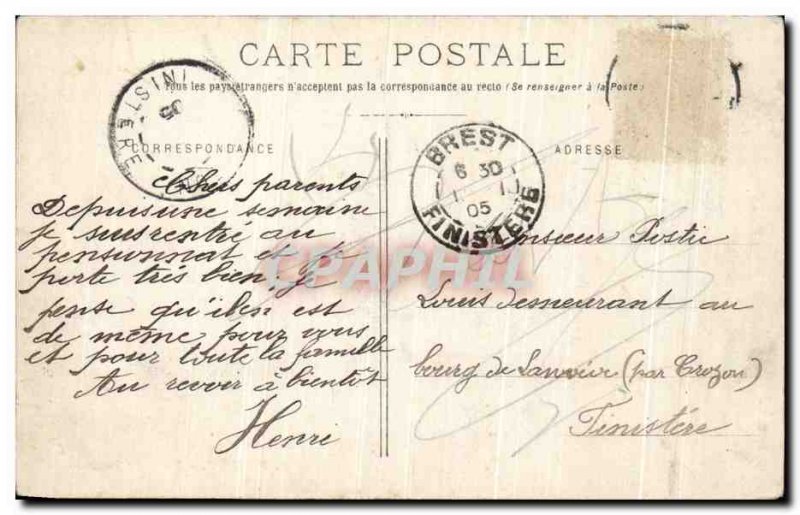 CARTE POSTALE
Tous les pays étrangers n'acceptent pas la correspondance au recto (Se renseigner à la Poste)
CORRESPONDANCE
ADRESSE
FINISTERE
05
BREST
6 30
05
FINISTERE
Chers parents
Depuis une semaine
je suis rentré au
pensionnat et je
porte très bien. Je
pense qu'il en est
de même pour vous
et pour toute la famille
Au revoir à bientôt
Henri
Monsieur Postic
Louis demeurant au
bourg de Lanvéoc (par Crozon)
Finistére
CPAPHIL